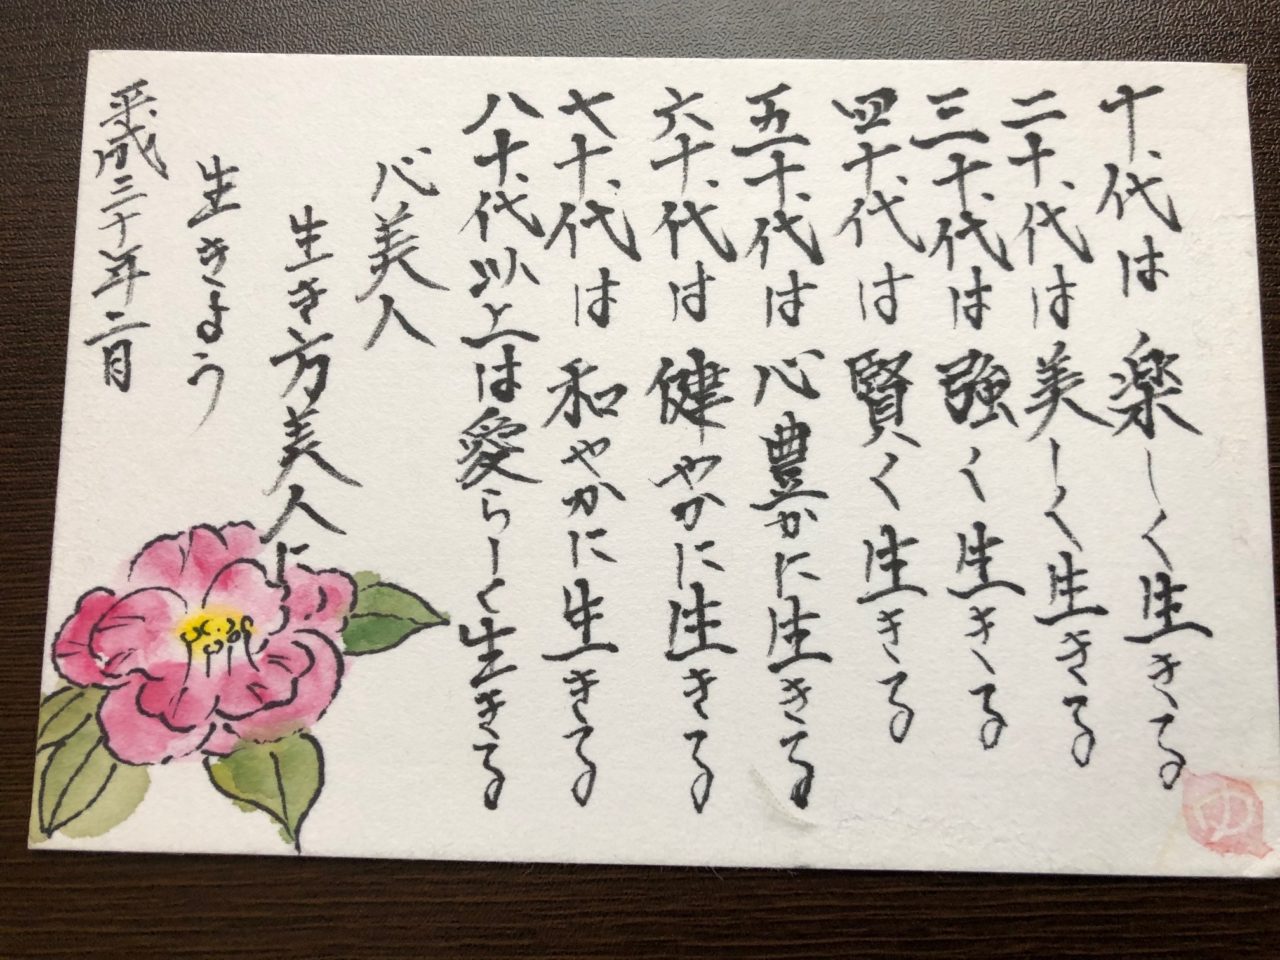 十代は 楽しく生きる
二十代は 美しく生きる
三十代は 強く生きる
四十代は 賢く生きる
五十代は 心豊かに生きる
六十代は 健やかに生きる
七十代は 和やかに生きる
八十代以上は愛らしく生きる
心美人
生き方美人に
生きよう
平成三十年二月
ゆ